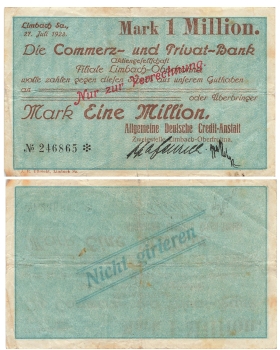 Limbach Sa.,
27. Juli 1923.
Mark 1 Million.
Die Commerz- und Privat-Bank
Aktiengesellschaft
Filiale Limbach
wolle zahlen gegen diesen aus unserem Guthaben
an oder Überbringer
Nur zur Verrechnung
Mark Eine Million.
Allgemeine Deutsche Credit-Anstalt
Zweigstelle Limbach-Oberfrohna.
№ 246865 ✻
Limbach Sa.
Nicht girieren